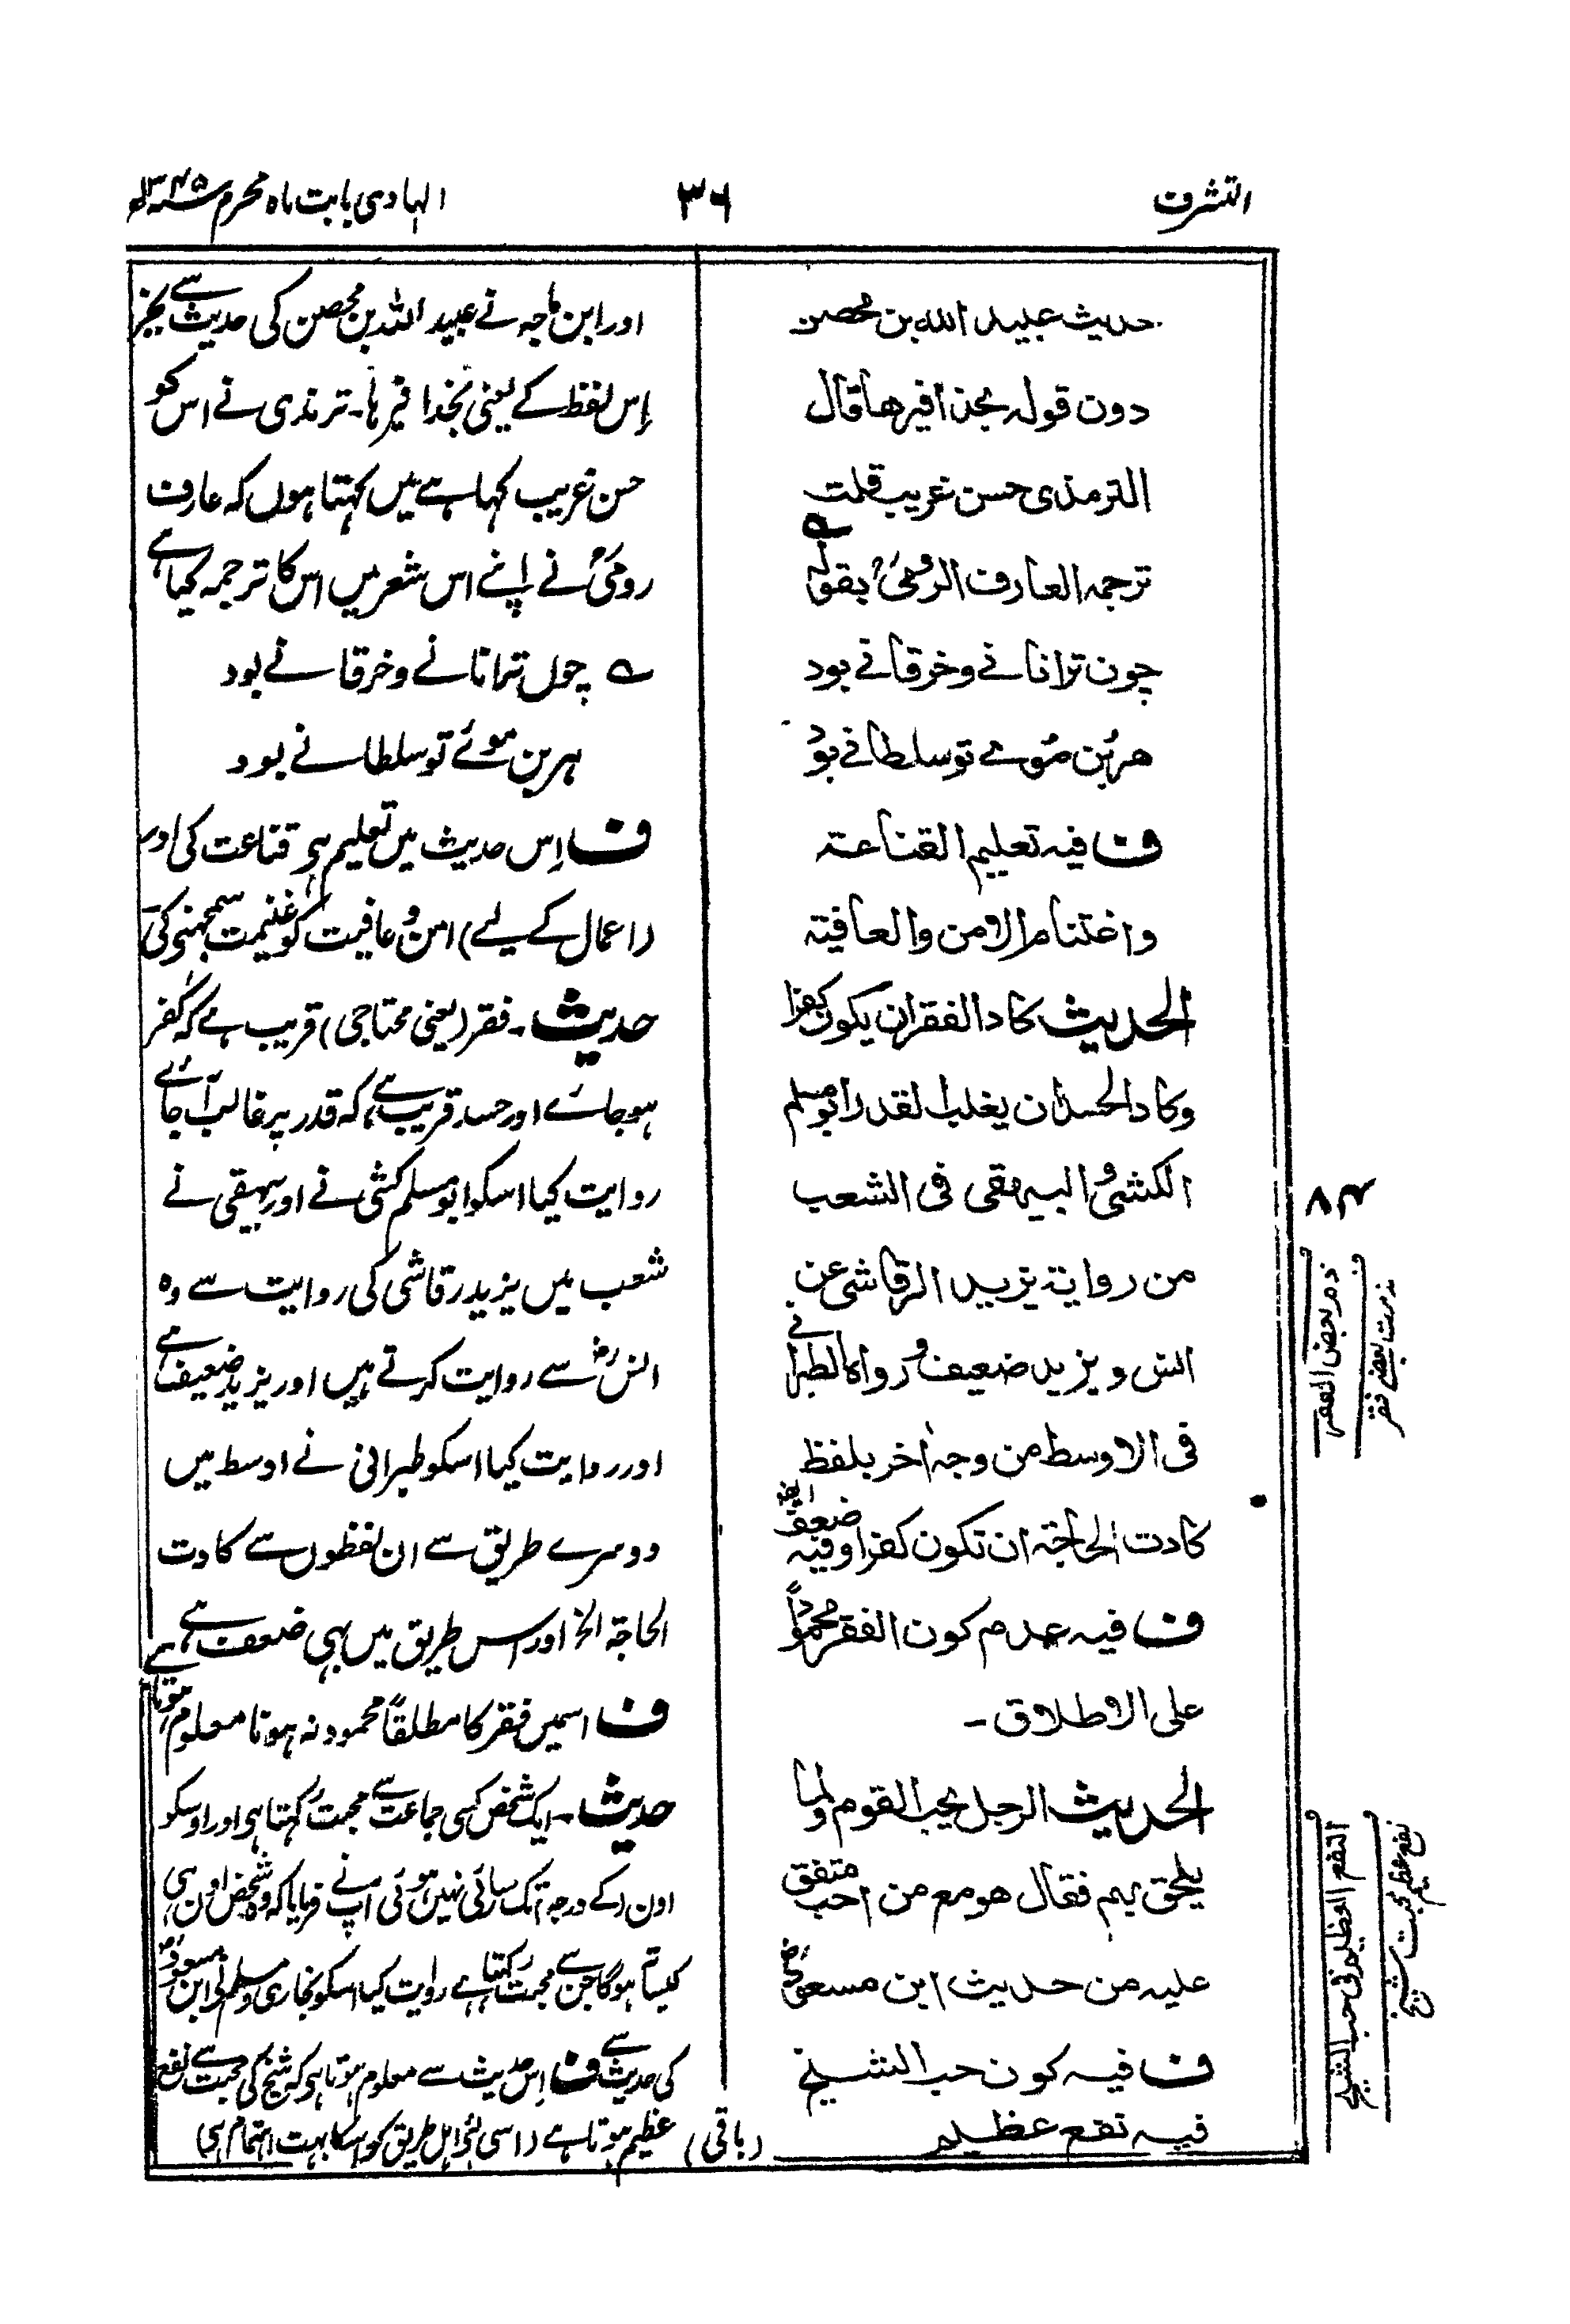 التشرف
۳۶
الہادی بابت ماہ محرم ۱۳۴۵ھ
حدیث عبید اللہ بن محصن
دون قولہ بحذافیرھا قال
الترمذی حسن غریب قلت
ترجمہ العارف الرومیؒ بقولہ ؎
چون ترا نانے و خرقانے بود
ھر بُن مُوئے تو سلطانے بود
ف فیہ تعلیم القناعۃ
واغتنام الامن والعافیۃ
الحدیث کاد الفقر ان یکون کفرا
وکاد الحسد ان یغلب القدر ابو مسلم
الکشی و البیہقی فی الشعب
من روایۃ یزید الرقاشی عن
انس و یزید ضعیف و رواہ الطبرانے
فی الاوسط من وجہ اٰخر بلفظ
کادت الحاجۃ ان تکون کفرا وفیہ ضعف ایضا
ف فیہ عدم کون الفقر محموداً
علی الاطلاق ۔
الحدیث الرجل یحب القوم ولما
یلحق بہم فقال ھو مع من احب متفق
علیہ من حدیث ابن مسعودؓ
ف فیہ کون حب الشیخ
فیہ نفع عظیم
اور ابن ماجہ نے عبید اللہ بن محصن کی حدیث سے بجز
اِس لفظ کے یعنی بحذافیرہا۔ ترمذی نے اس کو
حسن غریب کہا ہے میں کہتا ہوں کہ عارف
رومیؒ نے اپنے اس شعر میں اس کا ترجمہ کیا ہے
؎ چوں ترا نانے و خرقانے بود
ہر بن موئے تو سلطانے بود
ف اِس حدیث میں تعلیم ہی قناعت کی اور
(اعمال کے لیے) امن و عافیت کو غنیمت سمجہنے کی
حدیث۔ فقر (یعنی محتاجی) قریب ہے کہ کفر
ہو جائے اور حسد قریب ہے کہ قدر پر غالب آ جائے
روایت کیا اسکو ابو مسلم کشی نے اور بیہقی نے
شعب میں یزید رقاشی کی روایت سے وہ
انسؓ سے روایت کرتے ہیں اور یزید ضعیف ہے
اور روایت کیا اسکو طبرانی نے اوسط میں
دوسرے طریق سے ان لفظوں سے کادت
الحاجۃ الخ اور اس طریق میں بہی ضعف ہے
ف اسمیں فقر کا مطلقاً محمود نہ ہونا معلوم ہوتا ہے
حدیث۔ ایک شخص کسی جماعت سے محبت رکہتا ہی اور اوسکو
اون کے درجہ تک رسائی نہیں ہوئی آپ نے فرمایا کہ وہ شخص اون ہی
کیساتھ ہوگا جن سے محبت رکہتا ہے روایت کیا اسکو بخاری و مسلم نے ابن مسعودؓ
کی حدیث سے ف اِس حدیث سے معلوم ہوتا ہی کہ شیخ کی محبت سے نفع
عظیم ہوتا ہے (اسی لئے اہل طریق کو اسکا بہت اہتمام ہی
(باقی)
۸۴
ذم بعض الفقر
مذمت بعض فقر
النفع العظیم فی حب الشیخ
نفع عظیم محبت شیخ